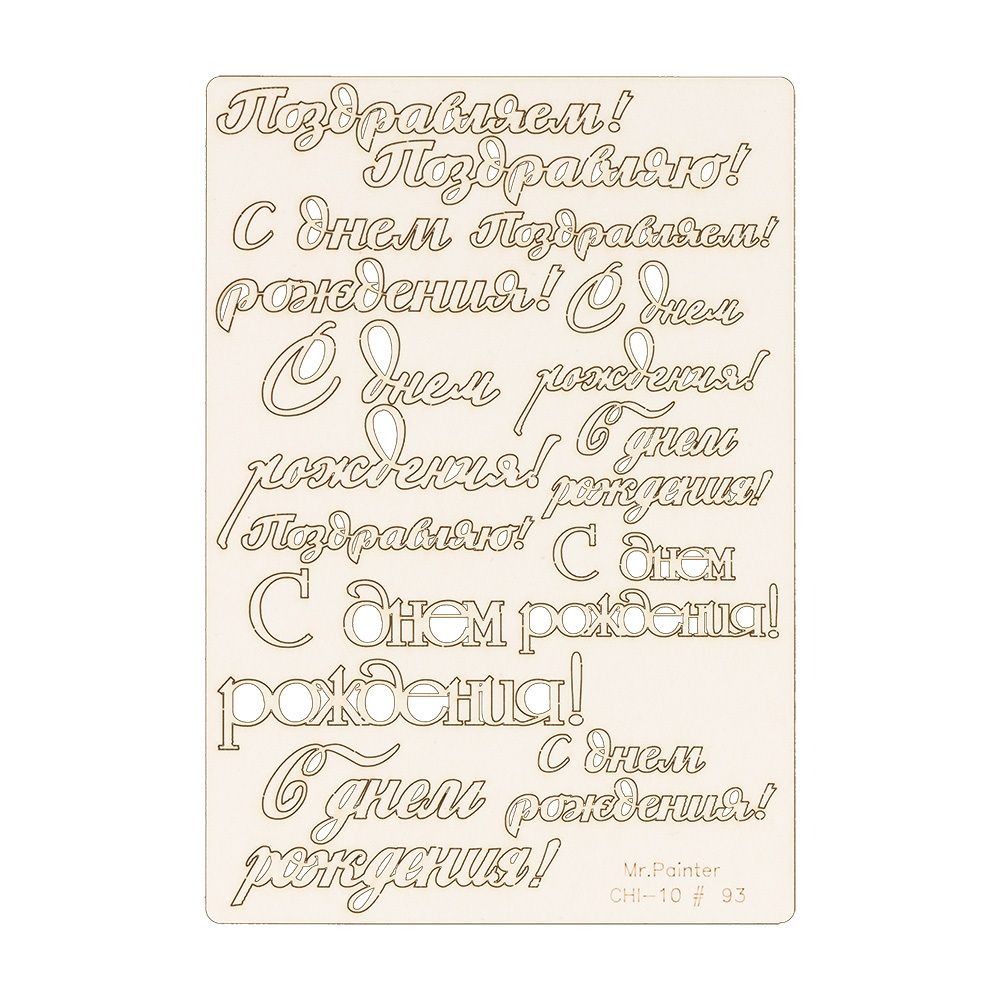 Поздравляем!
Поздравляю!
С днем
Поздравляем!
рождения!
С днем
рождения!
С днем
рождения!
С днем
рождения!
Поздравляю!
С днем
рождения!
С днем
рождения!
С днем
рождения!
С днем
рождения!
Mr.Painter
CHI-10 # 93